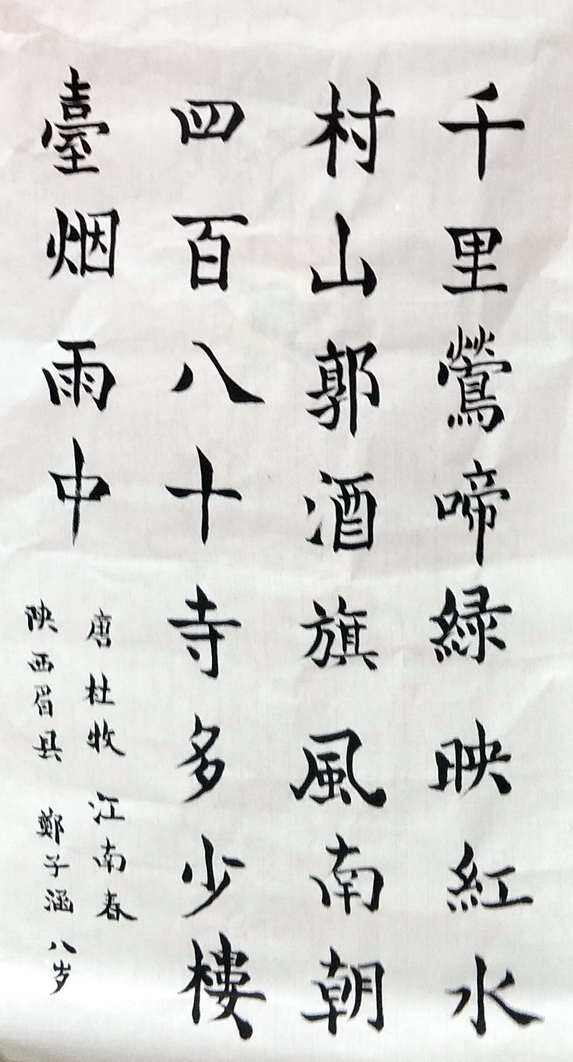 千里鶯啼緑映紅水
村山郭酒旗風南朝
四百八十寺多少樓
臺烟雨中
唐杜牧江南春
陕西眉县 鄭子涵 八岁